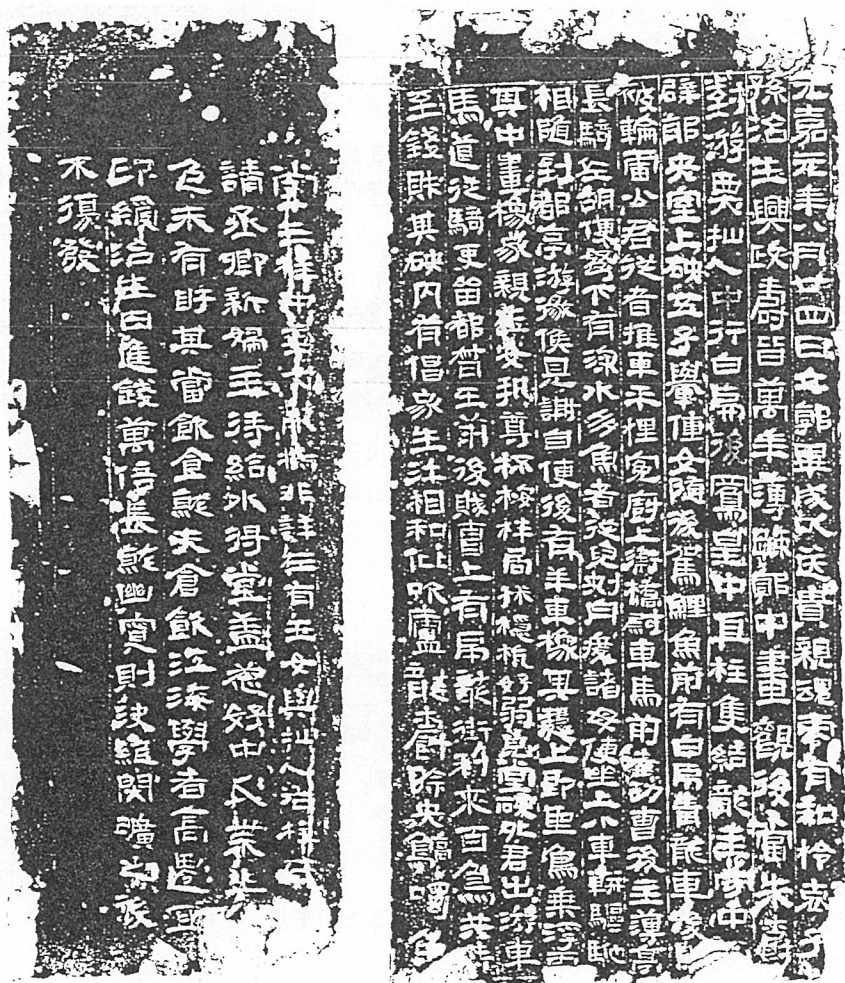 元嘉元年八月廿四日立郭畢成以送貴親魂零有知柃哀子
孫治生興政壽皆萬年薄疎郭中畫觀後當朱爵
對游仙人中行白虎後鳳皇中直柱隻結龍主守中
辟邪央室上硤五子轝僮女隨後駕鯉魚前有白虎青龍車後
被輪雷公君從者推車乎梩冤廚上衛橋尉車馬前者功曹後主簿亭
長騎左胡使弩下有流水多魚者從兒刺舟渡諸母便坐上小車軿驅馳
相隨到都亭游徼候見謝自便後有羊車橡其槥上即聖鳥乘浮雲
其中畫橡家親玉女執尊杯桉柈局抹檼杭好弱皃堂硤外君出游車
馬道從騎吏留都督在前後賊曹上有虎龍銜利來百鳥共持
至錢財其硤內有倡家生汙相和仳吹廬龍爵除央鶴噣魚
堂三柱中央龍非詳左有玉女與仙人右柱
請丞卿新婦主待給水將堂蓋蔥好中瓜葉上
包末有盱其當飲食就夫倉飲江海學者高遷宜
印綬治生日進錢萬倍長就幽冥則決絕閉曠之後
不復發